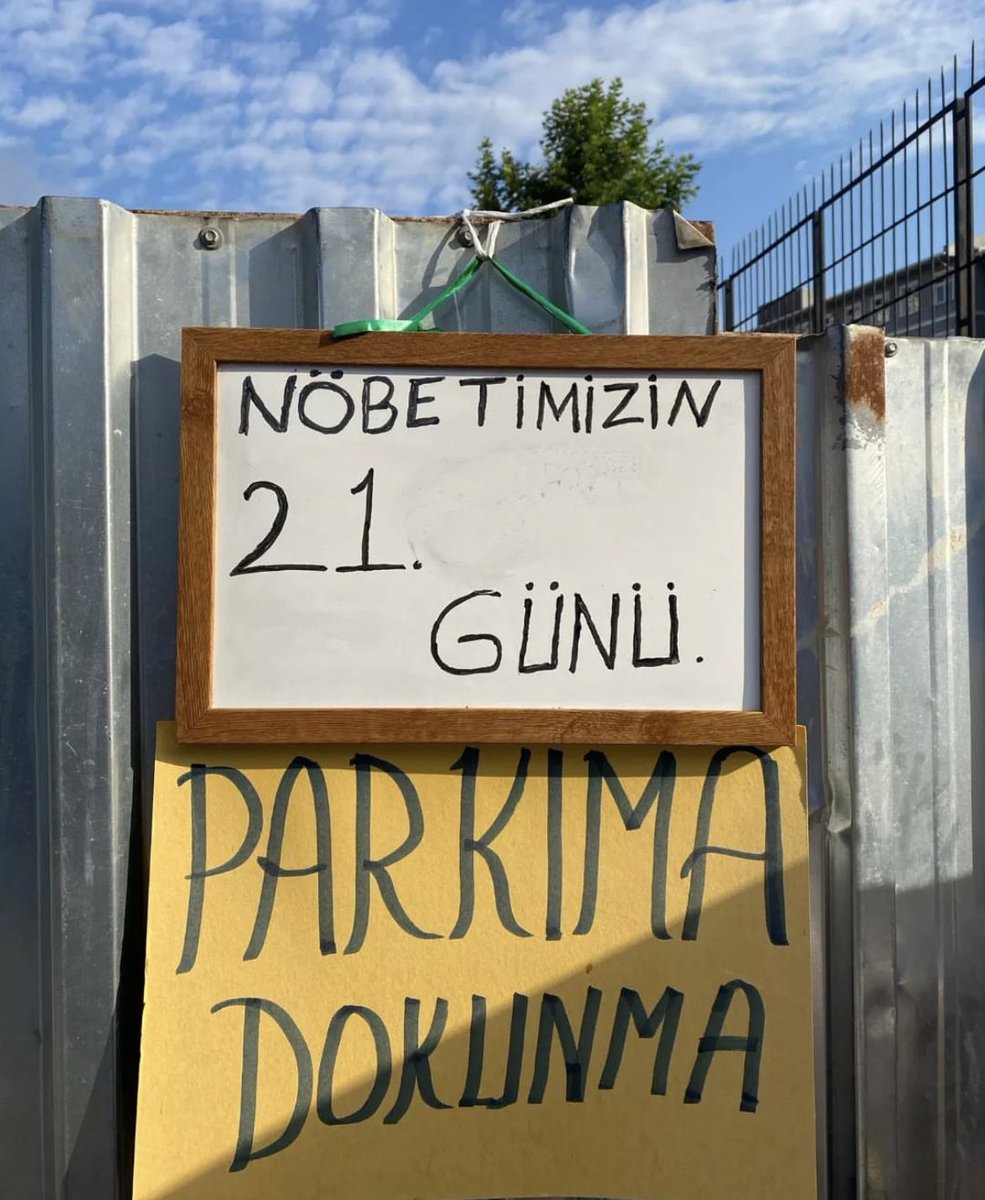 NÖBETİMİZİN
21.
GÜNÜ.
PARKIMA
DOKUNMA